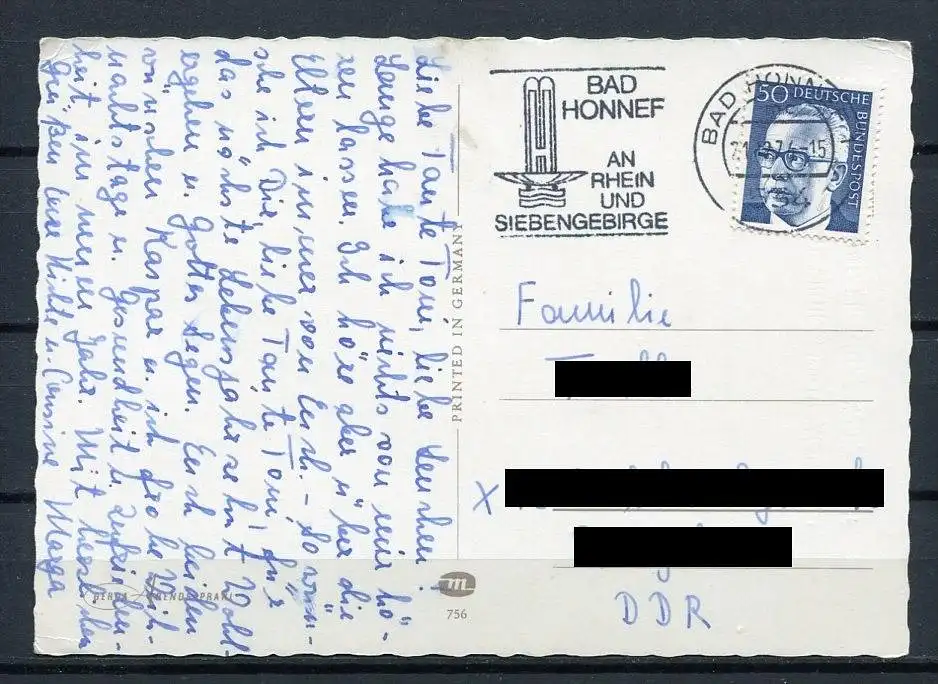 Liebe Tante Toni, liebe Leutchen!
Lange habe ich nichts von mir hö-
ren lassen. Ich höre aber über die
Eltern immer von Euch. – So wün-
sche ich Dir, liebe Tante Toni, für
das nächste Lebensjahrzehnt Wohl-
ergehen u. Gottes Segen. Euch beiden
wünschen Kaspar u. ich frohe Weih-
nachtstage u. Gesundheit u. Zufrieden-
heit im neuen Jahr. Mit herzlichen
Grüßen Eure Nichte u. Cousine Marga
PRINTED IN GERMANY
BAD
HONNEF
AN
RHEIN
UND
SIEBENGEBIRGE
BAD HONNEF
50 DEUTSCHE
BUNDESPOST
Familie
X
DDR
m
756